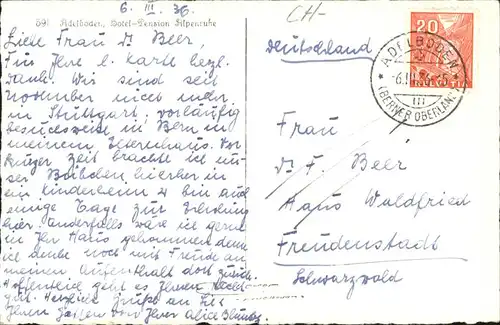 6. III. 36.
CH-
591 Adelboden, Hotel-Pension Alpenruhe
Liebe Frau Dr Beer,
Für Ihre l. Karte herzl.
Dank. Wir sind seit
November nicht mehr
in Stuttgart, vorläufig
besuchsweise in Bern in
meinem Elternhaus. Vor
kurzer Zeit brachte ich un-
ser Bübchen hierher in
ein Kinderheim & bin auch
einige Tage zur Erholung
hier. Andernfalls wäre ich gerne
in Ihr Haus gekommen denn
ich denke noch mit Freude an
meinen Aufenthalt dort zurück.
Hoffentlich geht es Ihnen recht
gut. Herzliche Grüße an Sie
Ihren Gatten von Ihrer Alice
Deutschland
20
HELVETIA
ADELBODEN
-6.III.36.-
(BERNER OBERLAND)
Frau
Dr F. Beer
Haus Waldfried
Freudenstadt
Schwarzwald